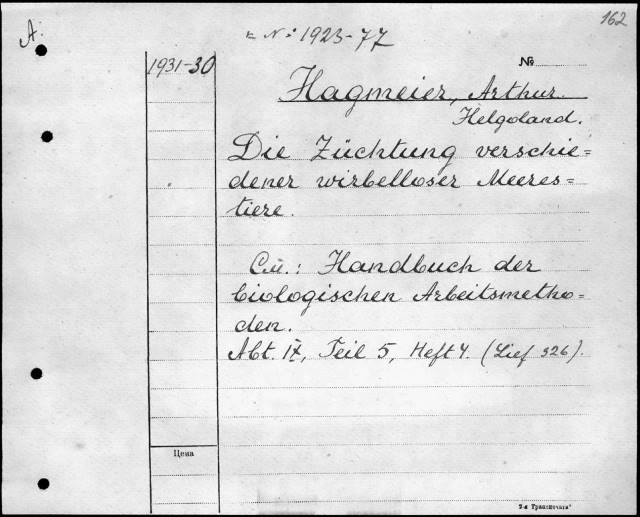 162
А.
к № 1923-77
1931-30
№
Hagmeier, Arthur.
Helgoland.
Die Züchtung verschie=
dener wirbelloser Meeres=
tiere.
См.: Handbuch der
biologischen Arbeitsmetho=
den.
Abt. IX, Teil 5, Heft 4. (Lief 326).
Цена
7-я Транспечати"